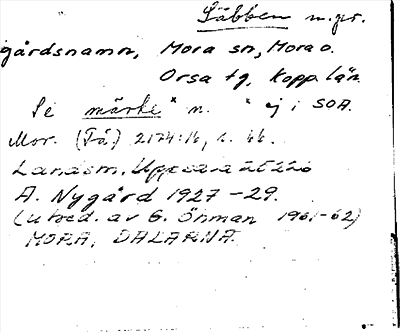 Säbben n.pr.
gårdsnamn, Mora sn, Mora o.
Orsa tg, Kopp. län.
Se märke n. ej i SOA.
Mor. (Få.) 2174:16, s. 46.
Landsm. Uppsala
A. Nygård 1927-29.
(utred. av G. Önman 1961-62)
MORA, DALARNA.